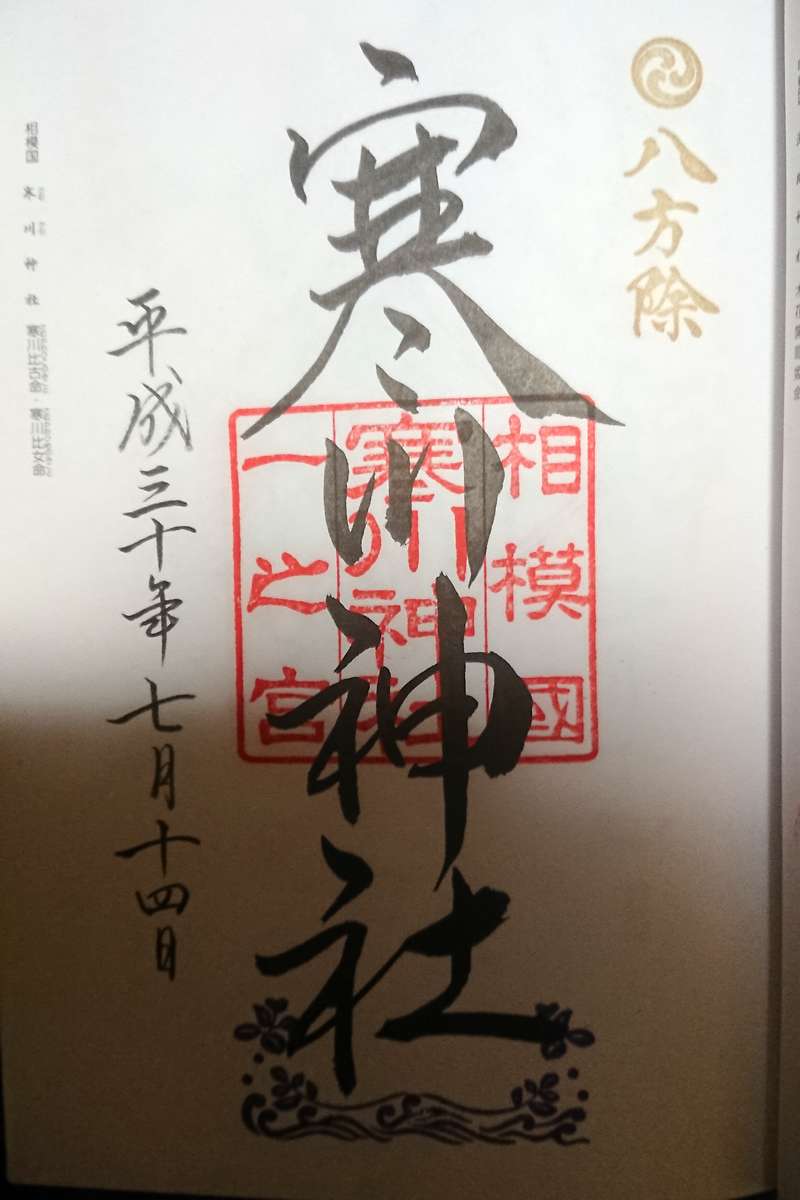 八方除
寒川神社
相模國
寒川神社
一之宮
平成三十年七月十四日
相模国 寒川神社 寒川比古命・寒川比女命